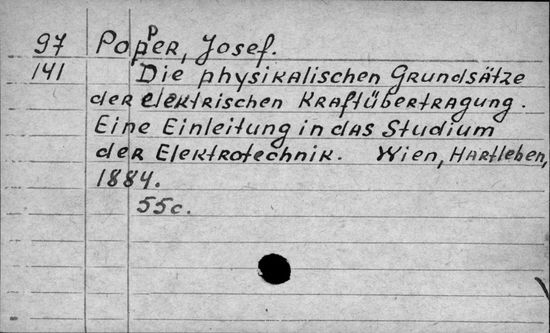 97 Popper, Josef.
141 Die physikalischen Grundsätze
der elektrischen Kraftübertragung.
Eine Einleitung in das Studium
der Elektrotechnik. Wien, Hartleben,
1884.
55c.